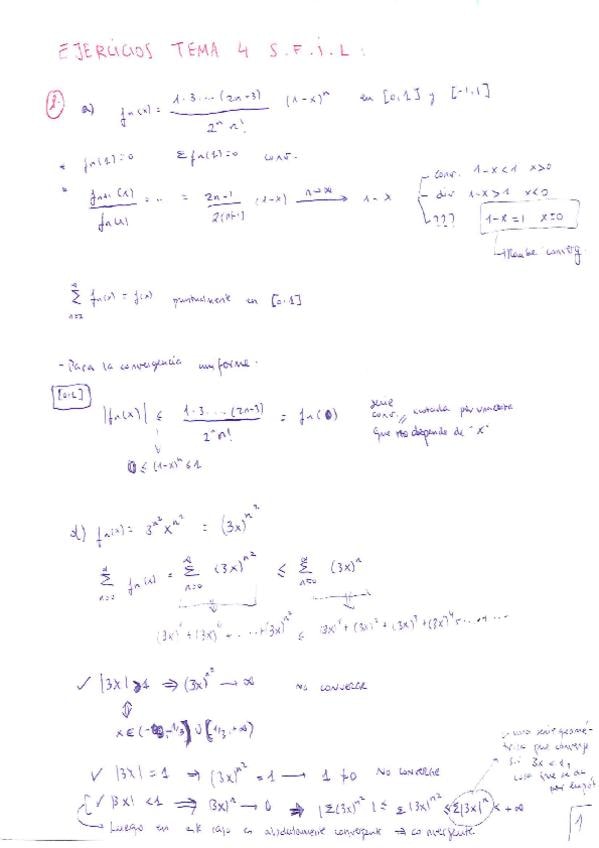 EJERCICIOS TEMA 4 S.F.i.L:
1. a) fn(x) = 1·3·...(2n-3) / 2^n n! (1-x)^n en [0,1] y [-1,1]
* fn(1)=0 Σfn(1)=0 conv.
* fn+1(x) / fn(x) = ... = 2n-1 / 2(n+1) (1-x) n→∞ → 1-x
conv. 1-x<1 x>0
div 1-x>1 x<0
??? 1-x=1 x=0
Σ n=1 ∞ fn(x) = f(x) puntualmente en [0,1]
- Para la convergencia uniforme.
[0,1]
|fn(x)| ≤ 1·3·...(2n-3) / 2^n n! = fn(0) serie conv.
que no depende de "x"
0 ≤ (1-x)^n ≤ 1
d) fn(x) = 3^n² x^n² = (3x)^n²
Σ n=0 ∞ fn(x) = Σ n=0 ∞ (3x)^n² ≤ Σ n=0 ∞ (3x)^n
(3x)¹+(3x)⁴+...+(3x)^n² ≤ (3x)¹+(3x)²+(3x)³+(3x)⁴+......
✓ |3x|>1 ⇒ (3x)^n² → ∞ NO CONVERGE
⇕
✓ |3x|=1 ⇒ (3x)^n² = 1 → 1≠0 NO CONVERGE
✓ |3x|<1 ⇒ (3x)^n → 0 ⇒ |Σ(3x)^n²| ≤ Σ|3x|^n² ≤ Σ|3x|^n < +∞
Luego en este caso es absolutamente convergente ⇒ convergente.
serie geométrica que converge
si 3x<1,
cosa que se da
por hipót
1